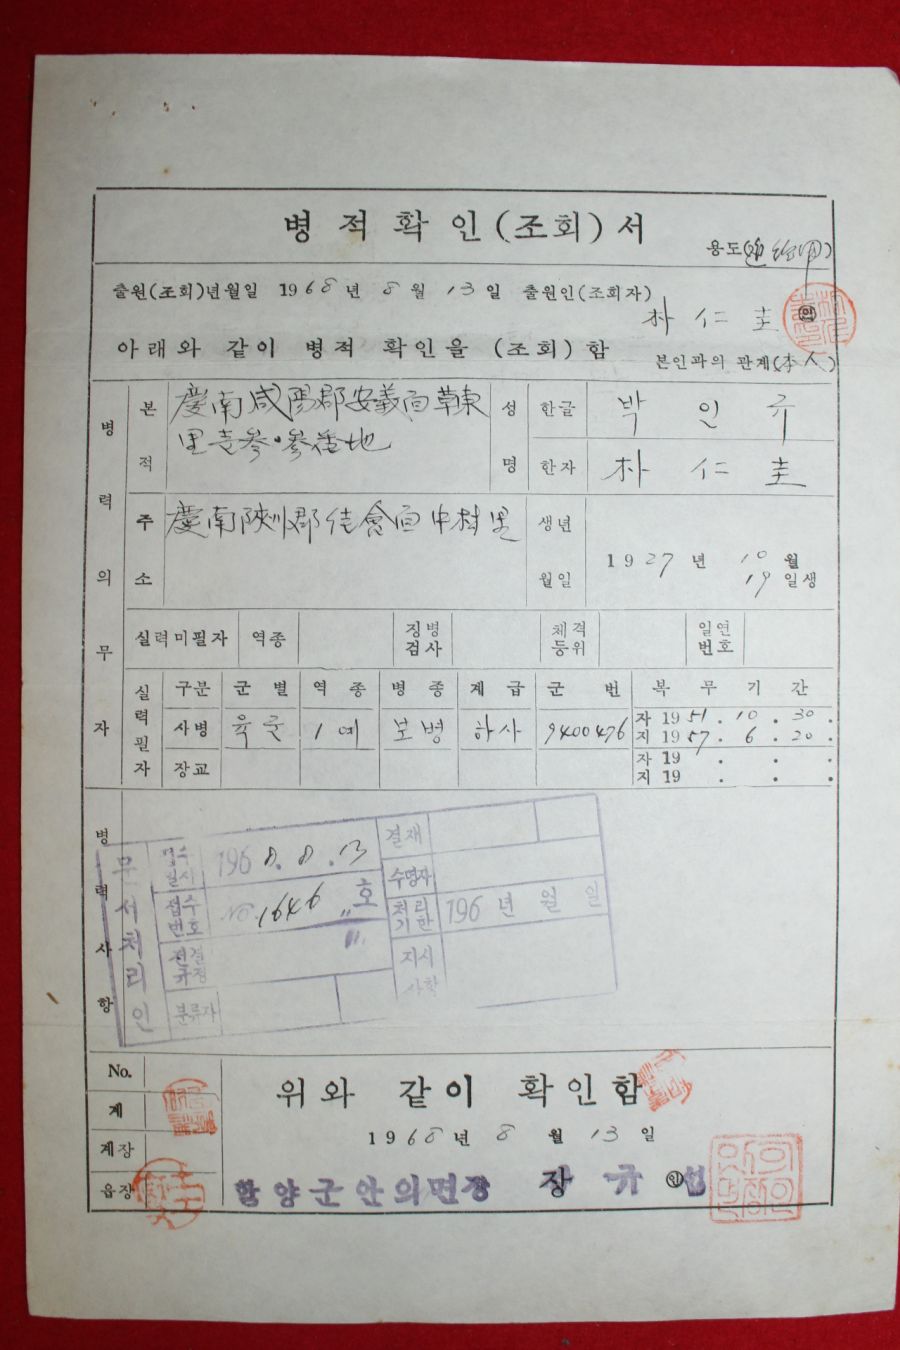 병적확인(조회)서
용도(
출원(조회)년월일 1968년 8월 13일 출원인(조회자)
朴仁圭 인
아래와 같이 병적 확인을 (조회)함
본인과의 관계(本人)
병력의무자
본적
慶南咸陽郡安義面草東
里壹參·參番地
성명
한글 박인규
한자 朴仁圭
주소
慶南陜川郡佳會面中村里
생년월일
1927년 10월
19일생
실력미필자 역종 징병검사 체격등위 일연번호
실력필자
구분 군별 역종 병종 계급 군번 복무기간
사병 육군 1예 보병 하사 9400476 자 1951.10.30.
지 1957.6.20.
장교 자 19 . . .
지 19 . . .
병력사항
문서처리인
접수일시 1968.8.13 결재
접수번호 No. 1646 호 수명자
처리기한 196 년 월 일
전결규정 지시사항
분류자
No.
계
계장
읍장
위와 같이 확인함
1968년 8월 13일
함양군안의면장 장규섭 인